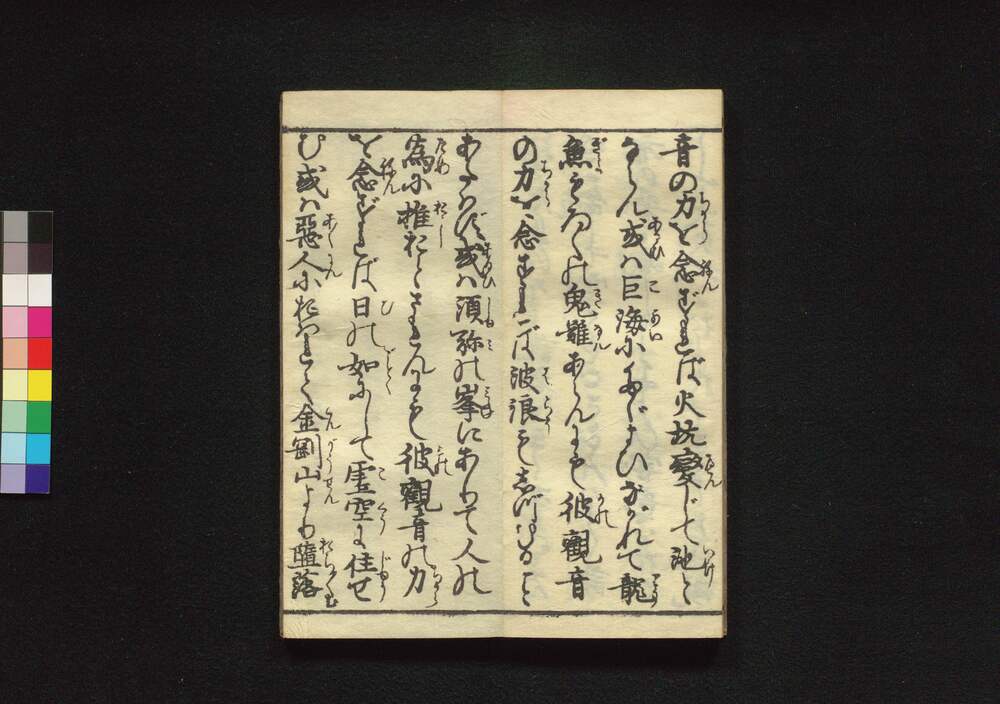 音の力を念ずれば火坑變じて池と
ならん或は巨海にたゞよひながれて龍
魚もろ〳〵の鬼難あらんにも彼觀音
の力を念ずれば波浪もしづむること
あたはず或は須弥の峯にありて人の
為に推おとされんにも彼觀音の力
を念ずれば日の如にして虚空に住せ
む或は惡人におはれて金剛山より墮落